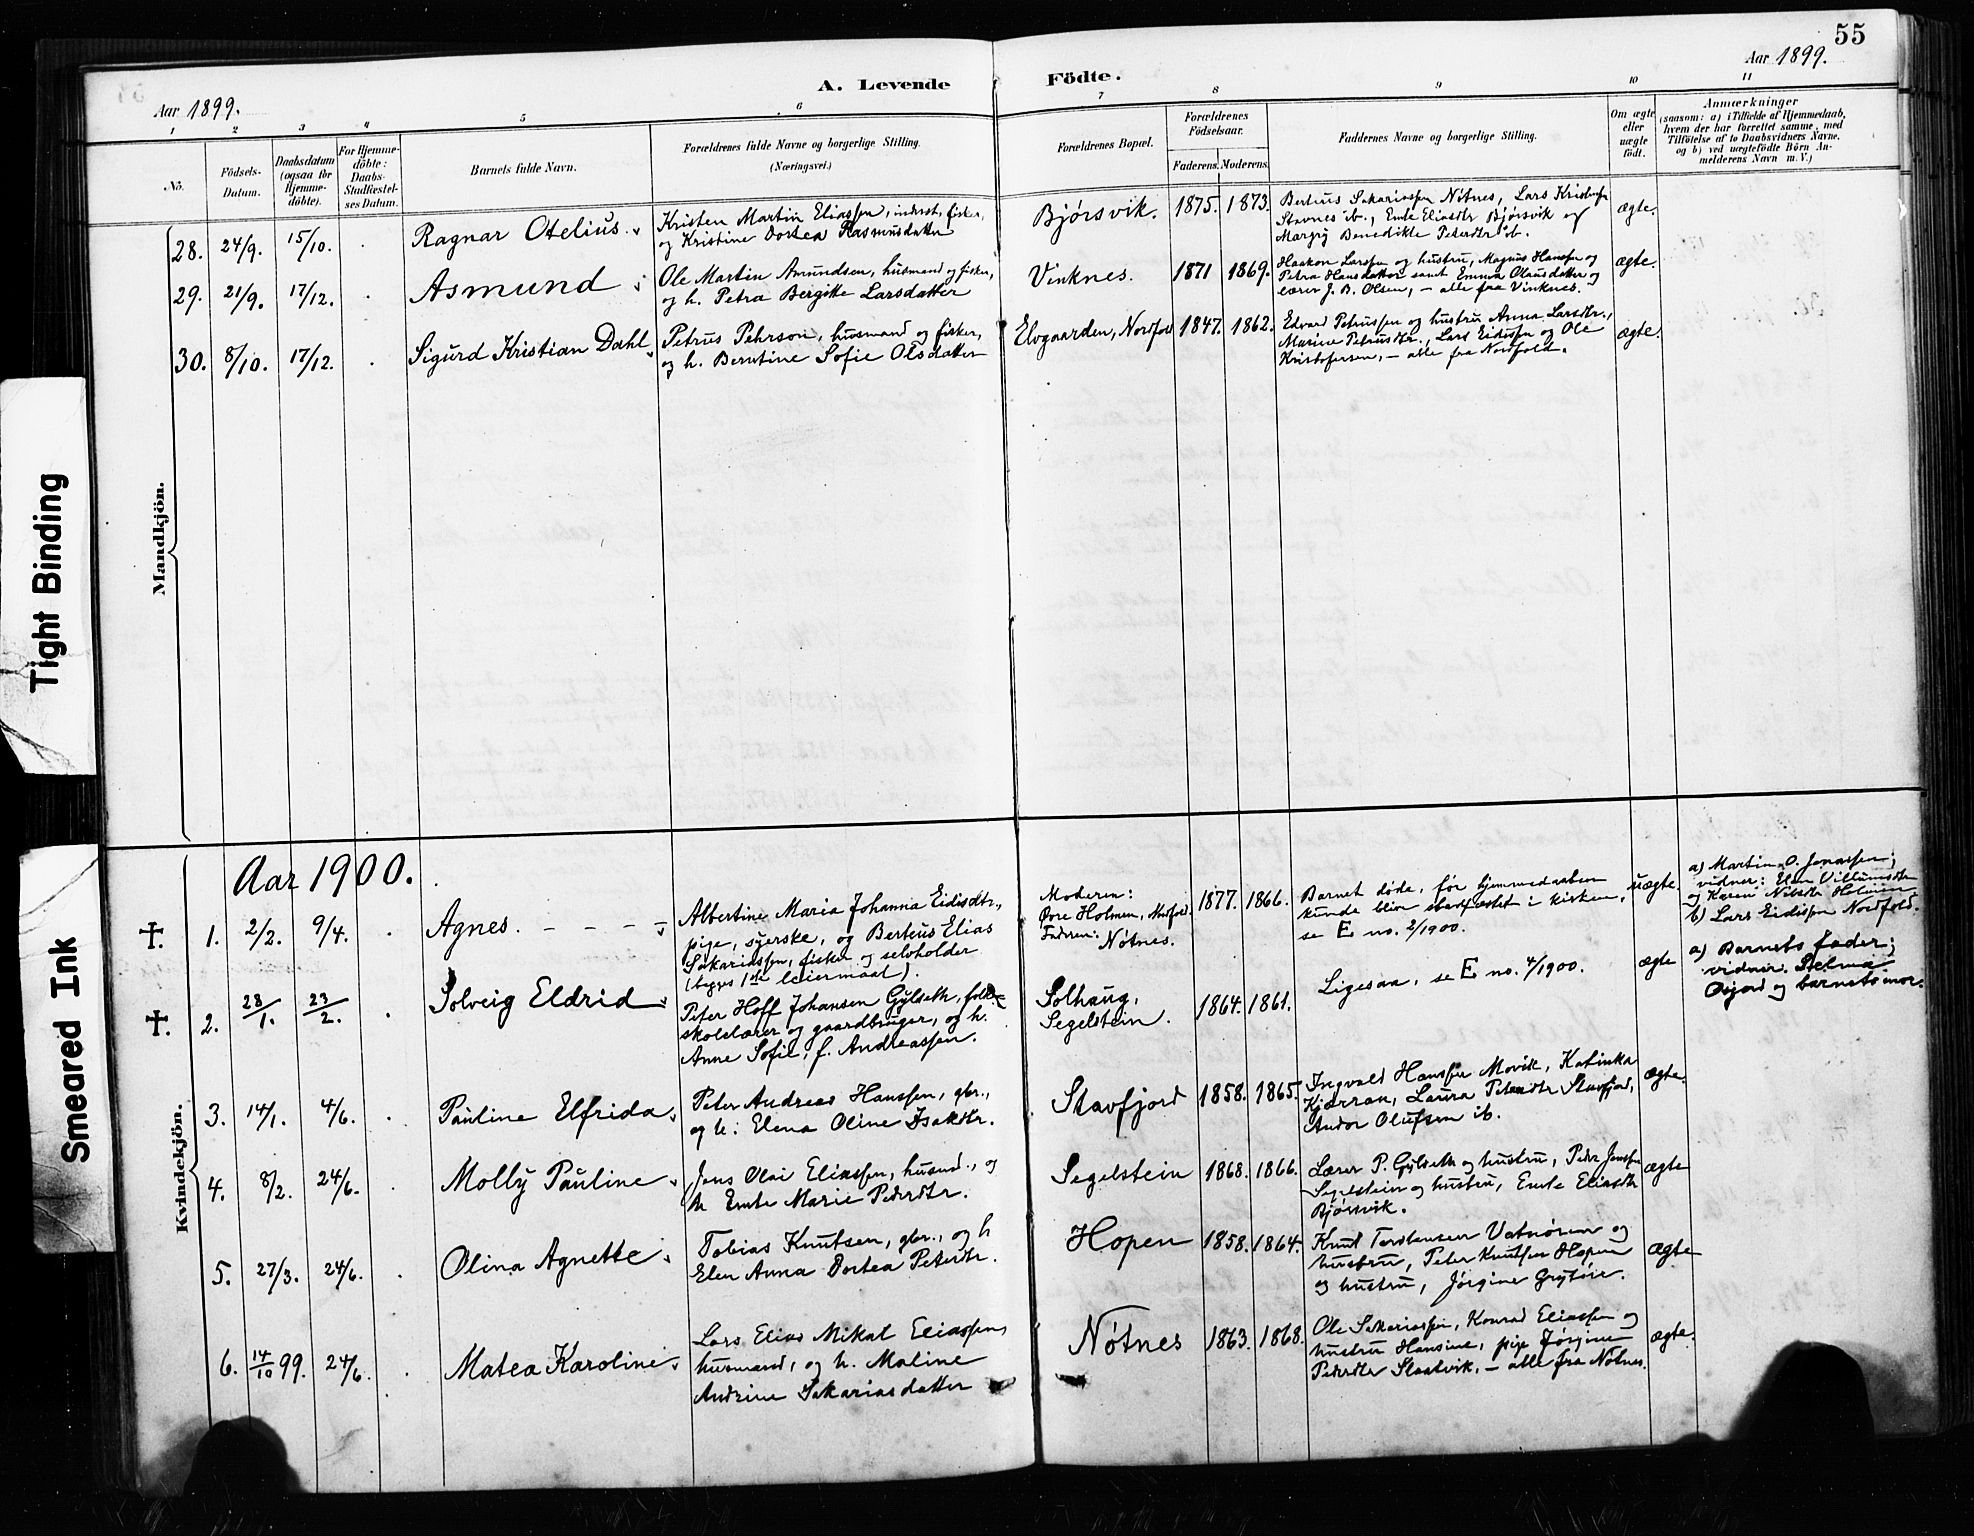 55
Aar 1899.
A. Levende Födte.
Aar 1899.
1 2 3 4 5 6 7 8 9 10 11
No.
Födsels-
Datum.
Daabsdatum
(ogsaa for
Hjemme-
döbte).
For Hjemme-
döbte:
Daabs-
Stadfæstel-
ses Datum.
Barnets fulde Navn.
Forældrenes fulde Navne og borgerlige Stilling.
(Næringsvei.)
Forældrenes Bopæl.
Forældrenes
Födselsaar.
Faderens. Moderens.
Faddernes Navne og borgerlige Stilling.
Om ægte
eller
uægte
födt.
Anmærkninger
(saasom: a) i Tilfælde af Hjemmedaab,
hvem der har forrettet samme, med
Tilföielse af to Daabsvidners Navne,
og b) ved uægtefödte Börn An-
melderens Navn m. V.)
Mandkjön.
28. 24/9. 15/10. Ragnar Otelius.
Kristen Martin Eliassen, inderst, fisker,
og Kristine Dortea Rasmusdatter
Bjørsvik. 1875. 1873.
Bertius Sakariassen Nøtnes, Lars Kristofer
Stavnes ib., Emte Eliasdtr Bjørsvik og
Margry Benedikte Petersdtr ib.
ægte.
29. 21/9. 17/12. Asmund
Ole Martin Amundsen, husmand og fisker,
og h. Petra Bergitte Larsdatter
Vinknes. 1871 1869.
Haakon Larssen og hustru, Magnus Hanssen og
Petra Hansdatter samt Emma Olausdatter og
lærer J. B. Olsen, – alle fra Vinknes.
ægte.
30. 8/10. 17/12. Sigurd Kristian Dahl
Petrus Pehrson, husmand og fisker,
og h. Berntine Sofie Olsdatter
Elvgaarden, Nordfold 1847. 1862.
Edvard Petrussen og hustru Anna Larsdtr.,
Marine Petrusdtr., Lars Eidissen og Ole
Kristofersen, – alle fra Nordfold.
ægte.
Kvindekjön.
Aar 1900.
†. 1. 2/2. 9/4. Agnes. – – – –
Albertine Maria Johanna Eidisdtr.,
pige, syerske, og Berteus Elias
Sakariassen, fisker og selvholder
(begges 1ste leiermaal).
Moderen:
Øvre Holmen, Nordfold.
Faderen:
Nøtnes.
1877. 1866.
Barnet døde, før hjemmedaaben
kunde blive stadfæstet i kirken,
se E no. 2/1900.
uægte.
a) Martin O. Jonassen;
vidner: Elen Villumsdtr
og Karen Nilsdtr Holmen
b) Lars Eidissen Nordfold.
†. 2. 28/1. 23/2. Solveig Eldrid
Peter Hoff Johansen Gylseth, folke-
skolelærer og gaardbruger, og h.
Anne Sofie, f. Andreassen.
Solhaug,
Segelstein.
1864. 1861.
Ligesaa, se E no. 4/1900.
ægte
a) Barnets fader;
vidner: Selma
og barnets mor.
3. 14/1. 4/6. Pauline Elfrida
Peter Andreas Hanssen, gbr.,
og h. Elena Oline Isaksdtr.
Stavfjord 1858. 1865.
Ingvald Hanssen Movik, Katinka
Kjærran, Laura Petersdtr Stavfjord,
Andor Olufsen ib.
ægte.
4. 8/2. 24/6. Molly Pauline
Jens Olai Eliassen, husmd., og
h Emte Marie Pedersdtr.
Segelstein 1868. 1866.
Lærer P. Gylseth og hustru, Peder Jenssen
Segelstein og hustru, Emte Eliasdtr
Bjørsvik.
ægte
5. 27/3. 24/6. Olina Agnette
Tobias Knutsen, gbr., og h
Elen Anna Dortea Petersdtr.
Hopen 1858. 1864.
Knut Torstensen Vatnøren og
hustru, Peter Knutsen Hopen
og hustru, Jørgine Grytøie.
ægte
6. 14/10 99. 24/6. Matea Karoline
Lars Elias Mikal Eliassen,
husmand, og h. Maline
Andrine Sakariasdatter
Nøtnes 1863. 1868.
Ole Sakariassen, Konrad Eliassen og
hustru Hansine, pige Jørgine
Pedersdtr Slaatvik, – alle fra Nøtnes.
ægte.
Tight Binding
Smeared Ink